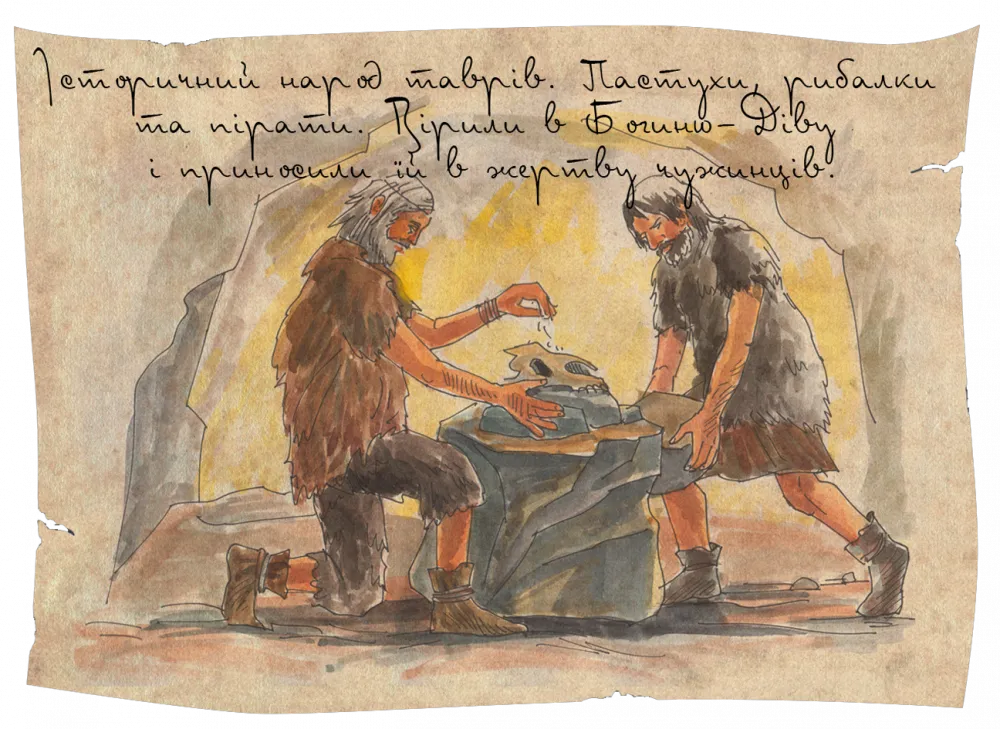 Історичний народ таврів. Пастухи, рибалки
та пірати. Вірили в Богиню-Діву
і приносили їй в жертву чужинців.